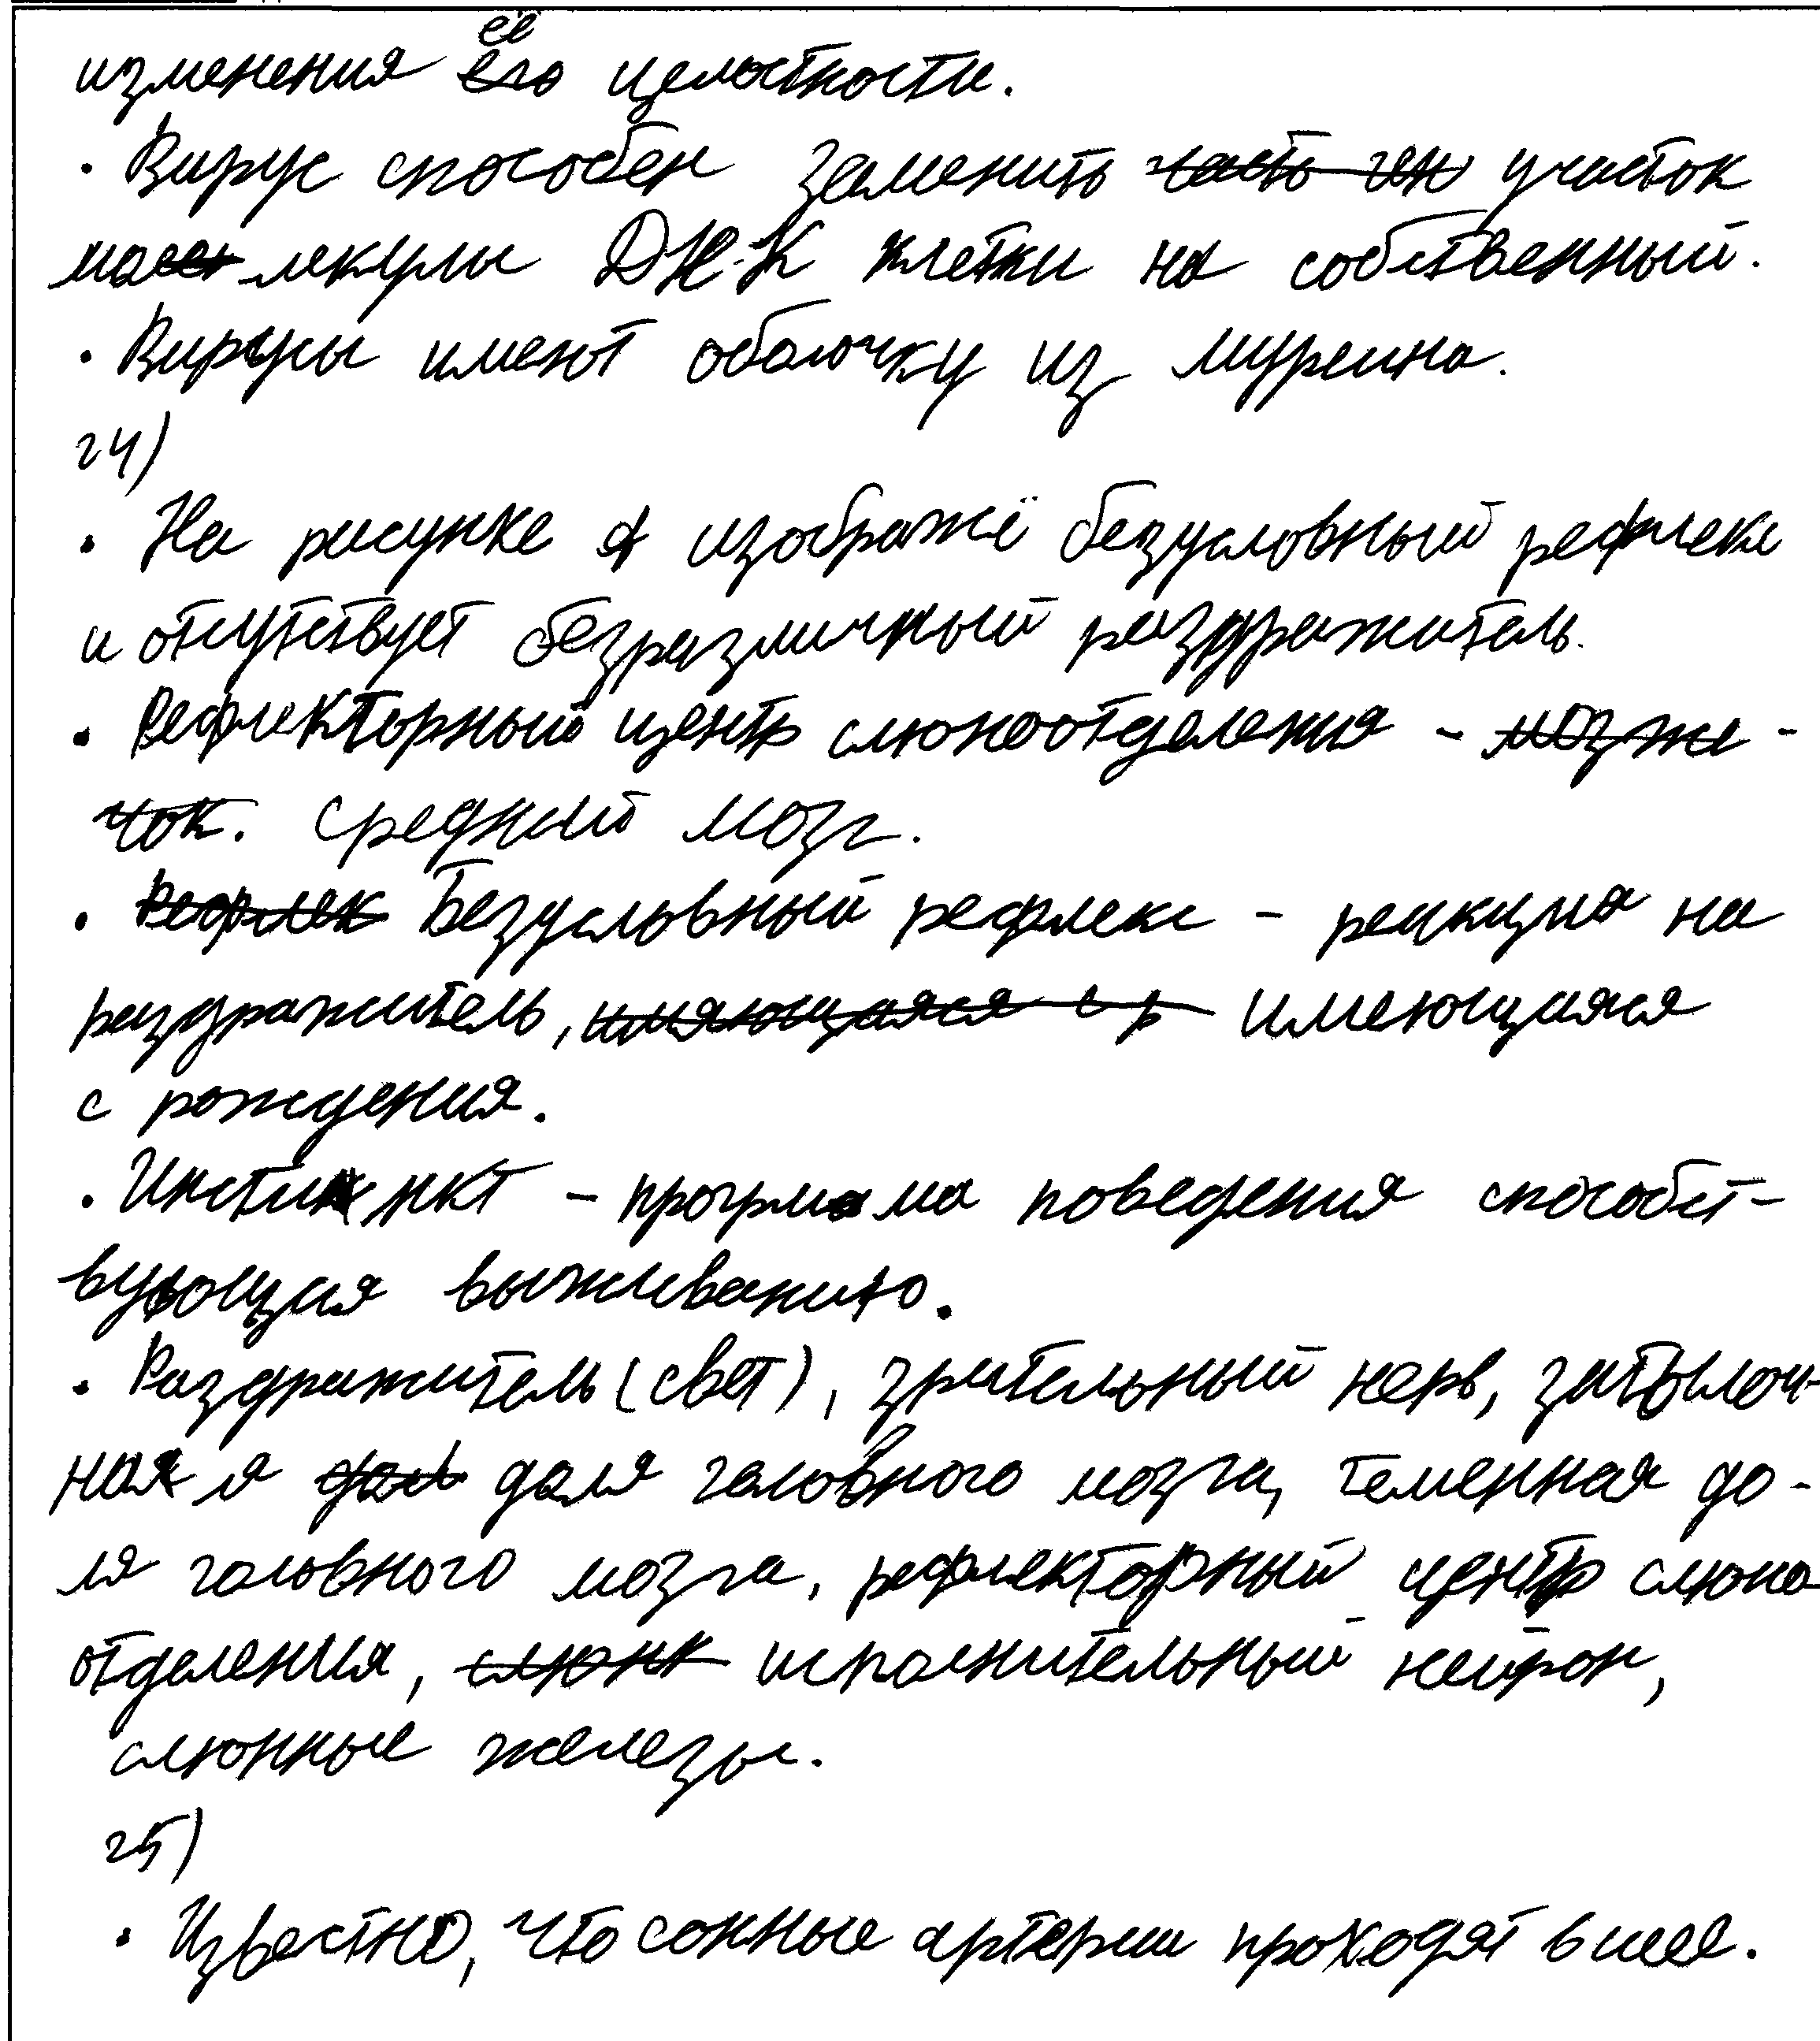 изменения её целостности.
· Вирус способен заменить участок
молекулы ДНК клетки на собственный.
· Вирусы имеют оболочку из муреина.
24)
· На рисунке изображё безусловный рефлекс
и отсутствует безразличный раздражитель.
· Рефлекторный центр слюноотделения -
средний мозг.
· Безусловный рефлекс - реакция на
раздражитель, имеющаяся
с рождения.
· Инстинкт - программа поведения способст-
вующая выживанию.
· Раздражитель (свет), зрительный нерв, затылоч-
ная доля головного мозга, теменная до-
ля головного мозга, рефлекторный центр слюно
отделения, исполнительный нейрон,
слюнные железы.
25)
· Известно, что сонные артерии проходят в шее.